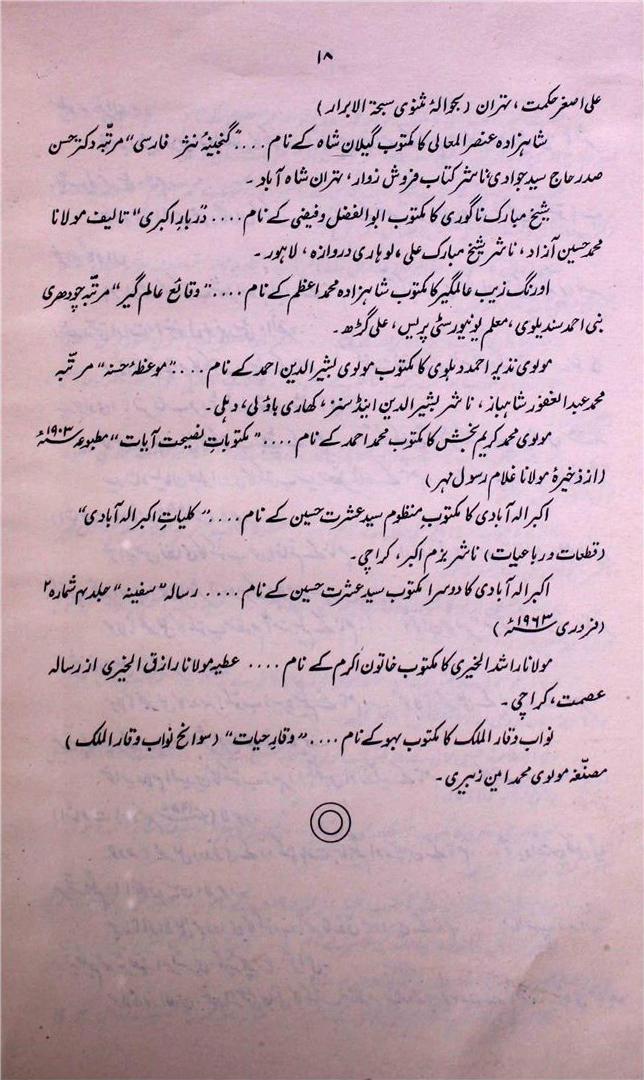 ۱۸
علی اصغر حکمت ، تہران (بحوالۂ مثنوی سبحۃ الابرار)
شاہزادہ عنصر المعالی کا مکتوب گیلان شاہ کے نام .... "گنجینۂ نثر فارسی" مرتبہ دکتر حسن
صدر حاج سید جوادی، ناشر کتاب فروش زوار، تہران شاہ آباد ۔
شیخ مبارک ناگوری کا مکتوب ابوالفضل و فیضی کے نام .... "دربارِ اکبری" تالیف مولانا
محمد حسین آزاد ، ناشر شیخ مبارک علی، لوہاری دروازہ ، لاہور ۔
اورنگ زیب عالمگیر کا مکتوب شاہزادہ محمد اعظم کے نام .... "وقائع عالم گیر" مرتبہ چودھری
نبی احمد سندیلوی، معلم یونیورسٹی پریس، علی گڑھ ۔
مولوی نذیر احمد دہلوی کا مکتوب مولوی بشیر الدین احمد کے نام .... "موعظۂ حسنہ" مرتّبہ
محمد عبد الغفور شاہباز، ناشر بشیر الدین اینڈ سنز، کھاری باؤلی، دہلی ۔
مولوی محمد کریم بخش کا مکتوب محمد احمد کے نام .... "مکتوبات نصیحت آیات" مطبوعہ ۱۹۰۳ء
(از ذخیرۂ مولانا غلام رسول مہر)
اکبر الہ آبادی کا مکتوب منظوم سید عشرت حسین کے نام .... "کلیاتِ اکبر الہ آبادی"
(قطعات و رباعیات) ناشر بزم اکبر، کراچی ۔
اکبر الہ آبادی کا دوسرا مکتوب سید عشرت حسین کے نام .... رسالہ "سفینہ" جلد ۴ شمارہ ۲
(فروری ۱۹۶۳ء)
مولانا راشد الخیری کا مکتوب خاتون اکرم کے نام .... عطیہ مولانا رازق الخیری از رسالہ
عصمت، کراچی ۔
نواب وقار الملک کا مکتوب بہو کے نام .... "وقارِ حیات" (سوانح نواب وقار الملک)
مصنّفہ مولوی محمد امین زبیری ۔